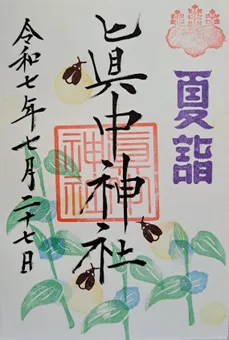 夏詣
眞中神社
眞中
神社
令和七年七月二十七日